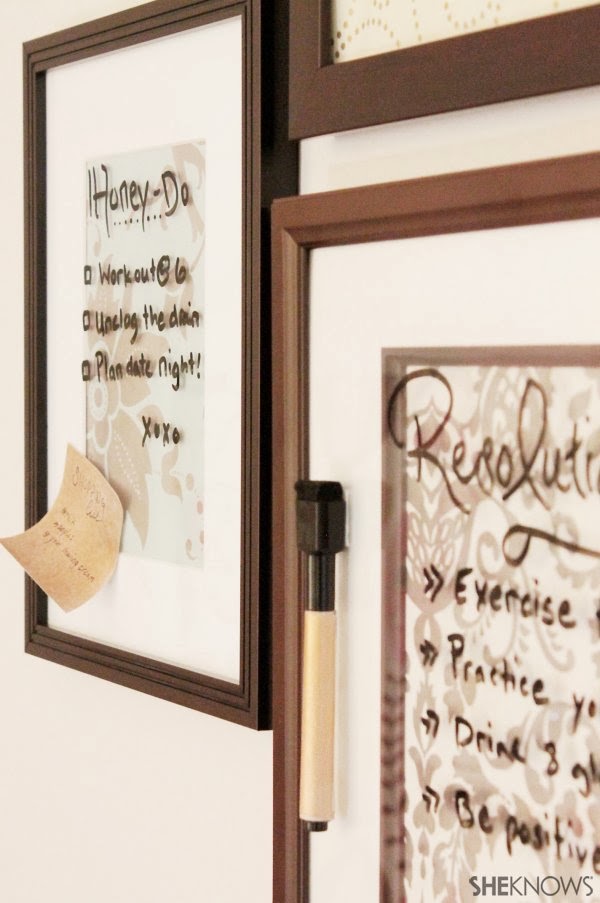 Honey-Do
Workout@6
Unclog the drain
Plan date night!
xoxo
Resoluti
» Exercise
» Practice yo
» Drink 8 gl
» Be positive
SHEKNOWS